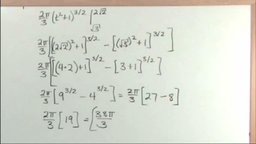 2π/3 (t²+1)^3/2 | 2√2 √3
2π/3 [[(2√2)²+1]^3/2 - [(√3)²+1]^3/2]
2π/3 [[(4·2)+1]^3/2 - [3+1]^3/2]
2π/3 [9^3/2 - 4^3/2] = 2π/3 [27-8]
2π/3 [19] = 38π/3